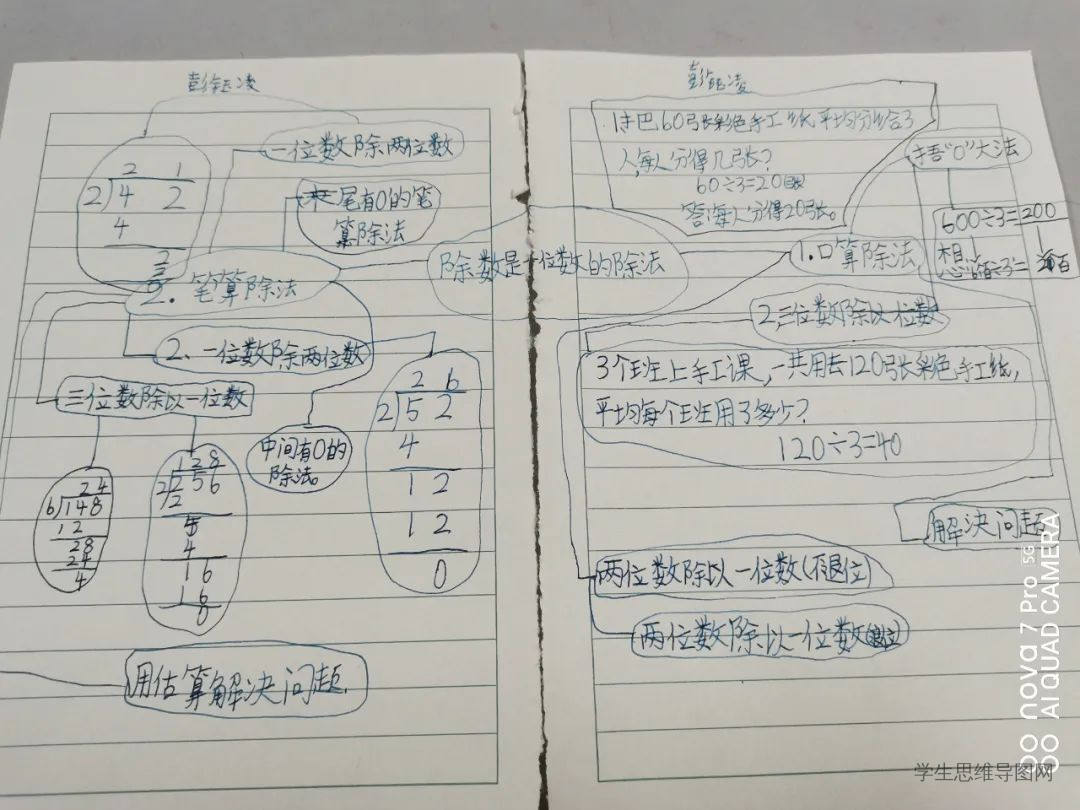 一位数除两位数
2 1
2 4 2
4
2
末尾有0的笔
算除法
2. 笔算除法
2. 一位数除两位数
三位数除以一位数
中间有0的
除法。
2 6
2 5 2
4
1 2
1 2
0
24
6 148
12
28
24
4
128
2 256
2
5
4
1 6
1 6
用估算解决问题.
除数是一位数的除法
60张彩色手工纸平均分给3
人,每人分得几张?
60÷3=20
答:每人分得20张。
捂“0”大法
600÷3=200
想
1.口算除法
2,三位数除以一位数
3个班上手工课,一共用去120张彩色手工纸,
平均每个班用了多少?
120÷3=40
解决问题
两位数除以一位数(不退位)
两位数除以一位数(退位)
nova 7 Pro 5G
AI QUAD CAMERA
学生思维导图网